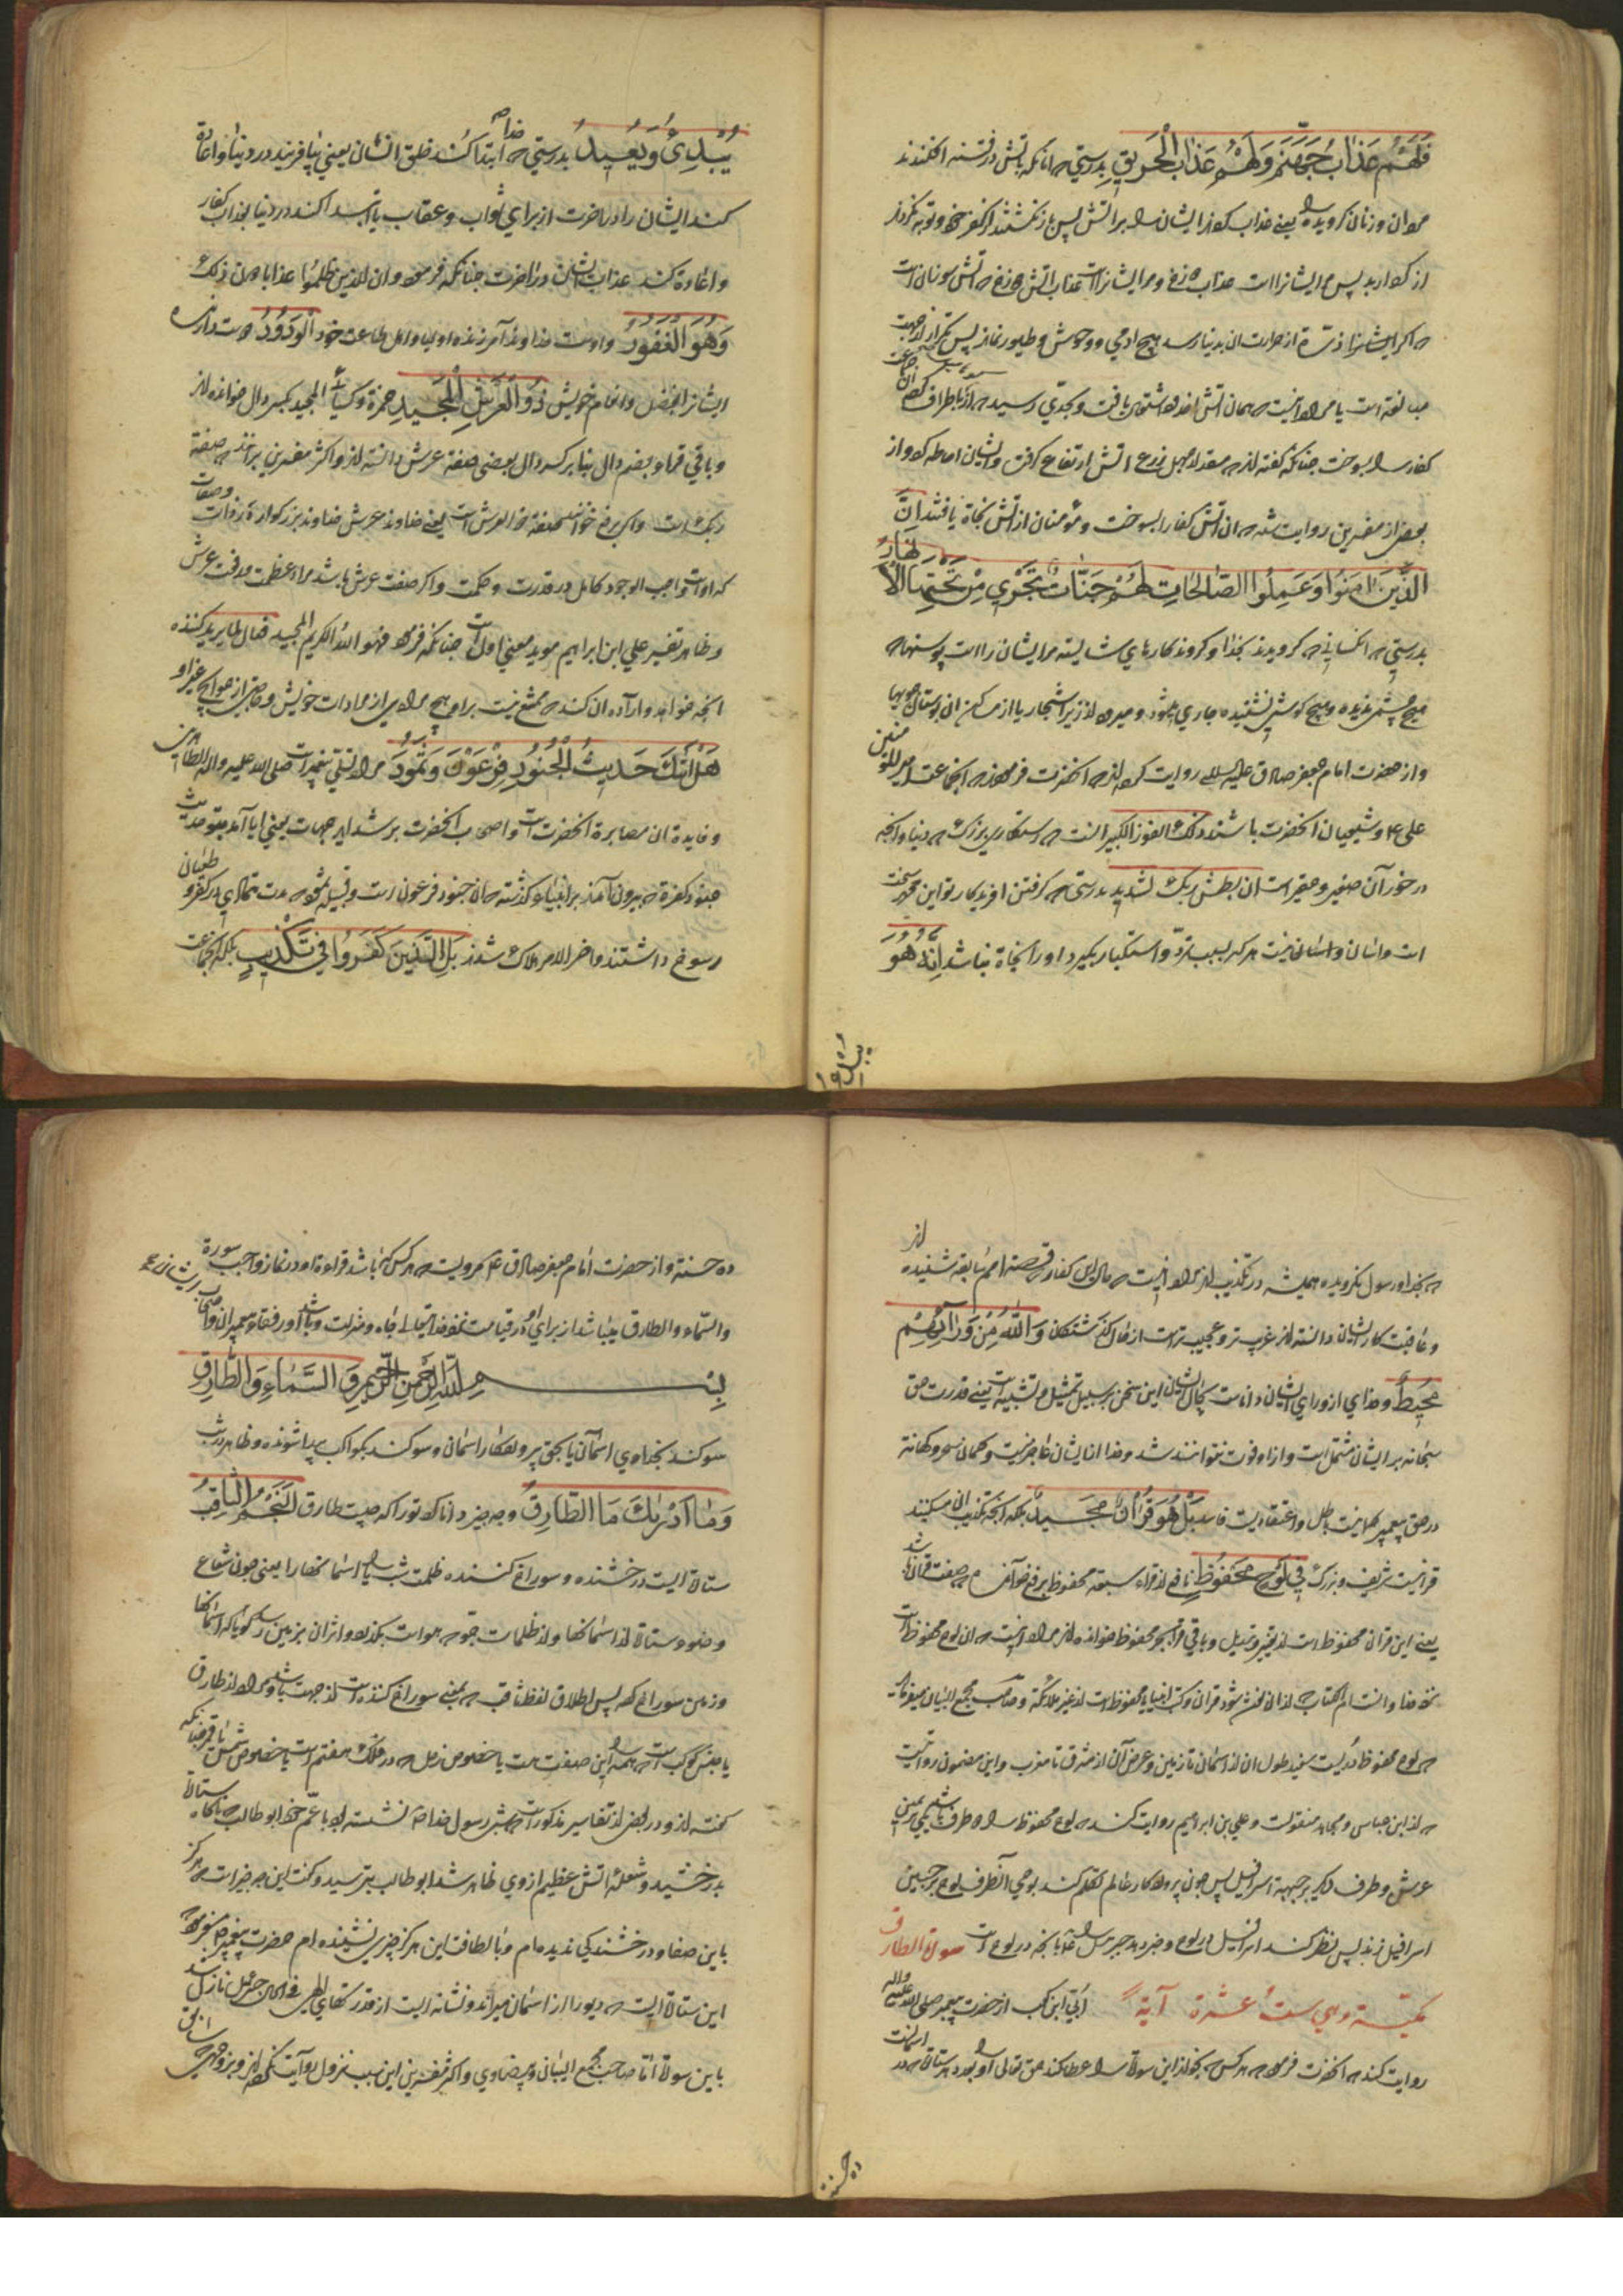 فَلَهُمْ عَذَابُ جَهَنَّمَ وَلَهُمْ عَذَابُ الْحَرِيقِ بدرستی که آنانکه باتش در فتنه افکندند
مردان و زنان کرویده را یعنی عذاب کردند ایشان را براتش پس باز نکشتند از کفر خود و توبه نکردند
از کردار بد پس مر ایشانرا است عذاب دوزخ و مر ایشانرا است عذاب اتش دوزخ که اتش سوزان است
که اکر ایشانرا ذره از حرارت ان بدنیا رسد هیچ ادمی و وحوش و طیور نماند پس تکرار از جهت
مبالغه است یا مراد انست که همان اتش اخدود اشتعال یافت و بحدی رسید که از اطراف
کفار را بسوخت چنانکه کفته اند که مقدار چهل ذرع اتش ارتفاع کرفت و بایشان احاطه کرد و از
بعضی از مفسرین روایت شده که ان اتش کفار را بسوخت و مؤمنان از اتش نجاة یافتند اِنَّ
الَّذِينَ اٰمَنُوا وَعَمِلُوا الصّٰالِحٰاتِ لَهُمْ جَنّٰاتٌ تَجْرِي مِنْ تَحْتِهَا الْاَنْهَارُ
بدرستی که انکسانی که کرویدند بخدا و کردند کارهای شایسته مر ایشان را است بوستانها که
هیچ چشمی ندیده و هیچ کوشی نشنیده جاری میشود و میرود از زیر اشجار یا از مساکن ان بوستان جویها
و از حضرت امام جعفر صادق علیه السلام روایت کرده اند که انحضرت فرمودند که انجماعت امیر المؤمنین
علی ع و شیعیان انحضرت باشند ذلک الفوز الکبیر انست رستکاری بزرک که دنیا و انچه
در خور آن صغیر و حقیر است ان بطش ربک لشدید بدرستی که کرفتن افریدکار تو این محمد سخت
است و انسان و اسان نیست هرکه بسبب تمرد و استکبار بکیرد او را نجاة نباشد اِنَّهُ هُوَ
یبدئ
يُبْدِئُ وَيُعِيدُ بدرستی که خدا ابتدا کند خلق انسان یعنی بیافریند در دنیا و اعادة
کند ایشان را در اخرت از برای ثواب و عقاب یا ابتدا کند در دنیا بعذاب کفار
و اعادة کند عذاب ایشان در اخرت چنانکه فرموده و ان للذین ظلموا عذابا دون ذلک
وَهُوَ الْغَفُورُ و اوست خداوند آمرزنده اولیا و اهل طاعت خود الْوَدُودُ دوست دارنده
ایشانرا بفضل و انعام خویش ذُو الْعَرْشِ الْمَجِيدِ حمزة و کسائی المجید بکسر دال خوانده اند
و باقی قراء بضم دال بنا بر کسر دال بعضی صفة عرش دانسته اند و اکثر مفسرین برانند که صفة
ربک است و اکر برفع خوانند صفة ذو العرش است یعنی خداوند عرش خداوند بزرکوار در ذات و صفات
که اوست واجب الوجود کامل در قدرت و حکمت و اکر صفت عرش باشد مراد عظمت و رفعت عرش
و ظاهر تفسیر علی ابن ابراهیم موید معنی اول است چنانکه فرموده فهو الله الکریم المجید فعال لما یرید کننده
انچه خواهد و اراده ان کند که ممتنع نیست بر او هیچ مرادی از مرادات خویش و
هَلْ اَتٰكَ حَدِيثُ الْجُنُودِ فِرْعَوْنَ وَثَمُودَ مراد تسلی پیغمبر است صلی الله علیه و اله الطاهرین
و فایدة ان مصابرة انحضرت است و اصحاب انحضرت بر شداید جهات یعنی ایا آمد بتو حدیث
جنود کفرة که بیرون آمدند بر انبیاء کذشته که ان جنود فرعون است و قبیله ثمود که مدت تمادی در کفر و طغیان
رسوخ داشتند و اخر الامر هلاک شدند بَلِ الَّذِينَ كَفَرُوا فِي تَكْذِيبٍ بلکه انجماعت
که بخدا و رسول نکرویده همیشه در تکذیب اند مراد انست که حال این کفار که قصة امم سابقه شنیده اند
و عاقبت کار ایشان دانسته اند غریب تر و عجیب تر است از حال کذشتکان وَاللّٰهُ مِنْ وَرَائِهِمْ
مُحِيطٌ و خدای از ورای ایشان داناست بحال ایشان این سخن بر سبیل تمثیل و تشبیه است یعنی قدرت حق
سبحانه بر ایشان مشتمل است و از او فوت نتوانند شد و خدا از ایشان عاجز نیست و کمان سحر و کهانة
در حق پیغمبر کمانیست باطل و اعتقادیست فاسد بَلْ هُوَ قُرْاٰنٌ مَجِيدٌ بلکه انچه تکذیب ان میکنند
قرانیست شریف و بزرک فِي لَوْحٍ مَحْفُوظٍ نافع از قراء سبعه محفوظ برفع خوانده که صفت قران باشد
یعنی این قران محفوظ است از تغییر و تبدیل و باقی قراء بجر محفوظ خوانده اند مراد انست که ان لوح محفوظ است
نزد خدا و انست ام الکتاب که از ان نسخ شود قران و کتب انبیا یا محفوظ است از غیر ملائکة و صاحب مجمع البیان میفرماید
که لوح محفوظ دُریست سفید طول ان از اسمان تا زمین و عرض آن از مشرق تا مغرب و این مضمون روایتیست
که از ابن عباس و مجاهد منقولست و علی بن ابراهیم روایت کند که لوح محفوظ را دو طرف باشد یکی بر یمین
عرش و طرف دیکر بر جبهة اسرافیل پس چون پروردکار عالم تکلم کند بوحی آنطرف لوح بر جبین
اسرافیل زند پس نظر کند اسرافیل در لوح و خبر دهد جبرئیل را بانچه در لوح است سورة الطارق
مکیة وهی ست عشرة آیة اُبیّ ابن کعب از حضرت پیغمبر صلی الله علیه واله
روایت کند که انحضرت فرمود که هر کس که بخواند این سورة را عطا کند حق تعالی او را بعدد هر ستاره که در اسمانست
ده حسنه
ده حسنة و از حضرت امام جعفر صادق ع مرویست که هر کس که باشد قراءة او در نماز واجب سورة
والسماء والطارق میباشد از برای او در قیامت نزد خدایتعالی جاه و منزلت و باشد او رفقاء پیغمبران و اصحاب ایشان
بِسْمِ اللّٰهِ الرَّحْمٰنِ الرَّحِيمِ وَالسَّمَاءِ وَالطَّارِقِ
سوکند بخداوی اسمان یا بحق پروردکار اسمان و سوکند بکواکب پیدا شونده و ظاهر در شب
وَمَا اَدْرٰىكَ مَا الطَّارِقُ و چه چیز دانا کرد تو را که چیست طارق النَّجْمُ الثَّاقِبُ
ستارة ایست درخشنده و سوراخ کننده ظلمت شب یا اسمانها را یعنی چون شعاع
و ضوء ستارة از اسمانها و از ظلمات جو که هواست بکذرد و اثر ان بزمین رسد کویا که اسمانها
و زمین سوراخ کرده پس اطلاق لفظ ثاقب که بمعنی سوراخ کننده است از جهت باشد و مراد از طارق
یا جنس کوکب است که همه را این صفت هست یا خصوص زحل که در فلک هفتم است یا خصوص شمس یا قمر چنانکه
کفته اند و در بعض از تفاسیر مذکور است که شبی رسول خدا ص نشسته بود با عم خود ابو طالب که ناکاه ستارة
بدرخشید و شعلة اتش عظیم از وی ظاهر شد ابو طالب بترسید و کفت این چه چیز است که هرکز
باین صفا و درخشندکی ندیده ام و بالطافت این هرکز چیزی نشنیده ام حضرت پیغمبر ص فرمود که
این ستارة ایست که دیو را از اسمان میراند و نشانه ایست از قدرتهای الهی فی الحال جبرئیل نازل شد
باین سورة اما صاحب مجمع البیان و بیضاوی و اکثر مفسرین این سبب نزول روایت نکرده اند